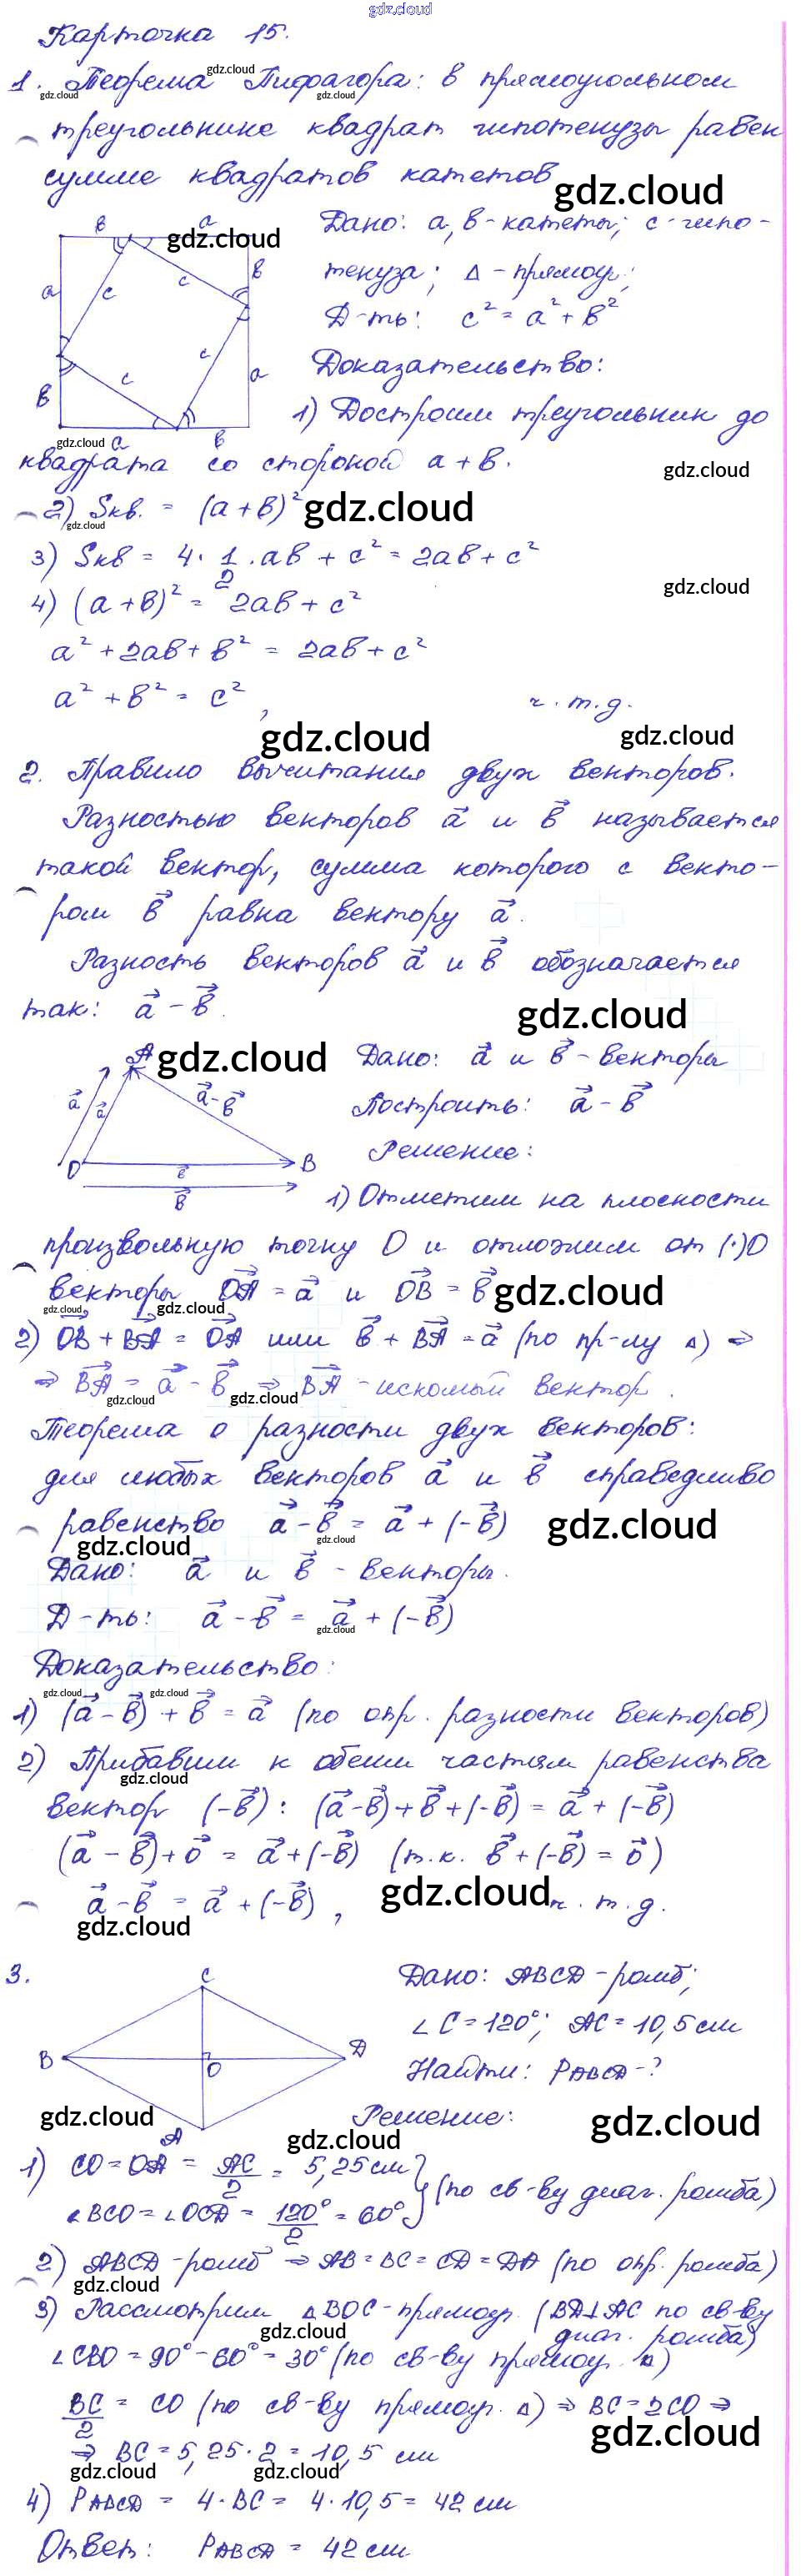 gdz.cloud
Карточка 15.
1. Теорема Пифагора: в прямоугольном
треугольнике квадрат гипотенузы равен
сумме квадратов катетов
Дано: a, b - катеты; c - гипо-
тенуза; Δ - прямоуг.;
Д-ть: c² = a² + b²
Доказательство:
1) Достроим треугольник до
квадрата со стороной a + b.
2) Sкв. = (a + b)²
3) Sкв = 4 · 1/2 · ab + c² = 2ab + c²
4) (a + b)² = 2ab + c²
a² + 2ab + b² = 2ab + c²
a² + b² = c², ч.т.д.
2. Правило вычитания двух векторов.
Разностью векторов a⃗ и b⃗ называется
такой вектор, сумма которого с векто-
ром b⃗ равна вектору a⃗.
Разность векторов a⃗ и b⃗ обозначается
так: a⃗ - b⃗.
Дано: a⃗ и b⃗ - векторы
Построить: a⃗ - b⃗
Решение:
1) Отметим на плоскости
произвольную точку O и отложим от (·)O
векторы OA⃗ = a⃗ и OB⃗ = b⃗
2) OB⃗ + BA⃗ = OA⃗ или b⃗ + BA⃗ = a⃗ (по пр-лу Δ) ⇒
⇒ BA⃗ = a⃗ - b⃗ ⇒ BA⃗ - искомый вектор.
Теорема о разности двух векторов:
для любых векторов a⃗ и b⃗ справедливо
равенство a⃗ - b⃗ = a⃗ + (-b⃗)
Дано: a⃗ и b⃗ - векторы.
Д-ть: a⃗ - b⃗ = a⃗ + (-b⃗)
Доказательство:
1) (a⃗ - b⃗) + b⃗ = a⃗ (по опр. разности векторов)
2) Прибавим к обеим частям равенства
вектор (-b⃗): (a⃗ - b⃗) + b⃗ + (-b⃗) = a⃗ + (-b⃗)
(a⃗ - b⃗) + 0⃗ = a⃗ + (-b⃗) (т.к. b⃗ + (-b⃗) = 0⃗)
a⃗ - b⃗ = a⃗ + (-b⃗), ч.т.д.
3. Дано: ABCD - ромб;
∠C = 120°; AC = 10,5 см
Найти: PABCD - ?
Решение:
1) CO = OA = AC/2 = 5,25 см
∠BCO = ∠OCD = 120°/2 = 60° } (по св-ву диаг. ромба)
2) ABCD - ромб ⇒ AB = BC = CD = DA (по опр. ромба)
3) Рассмотрим ΔBOC - прямоуг. (BD⊥AC по св-ву
диаг. ромба)
∠CBO = 90° - 60° = 30° (по св-ву прямоуг. Δ)
BC/2 = CO (по св-ву прямоуг. Δ) ⇒ BC = 2CO ⇒
⇒ BC = 5,25 · 2 = 10,5 см
4) PABCD = 4 · BC = 4 · 10,5 = 42 см
Ответ: PABCD = 42 см